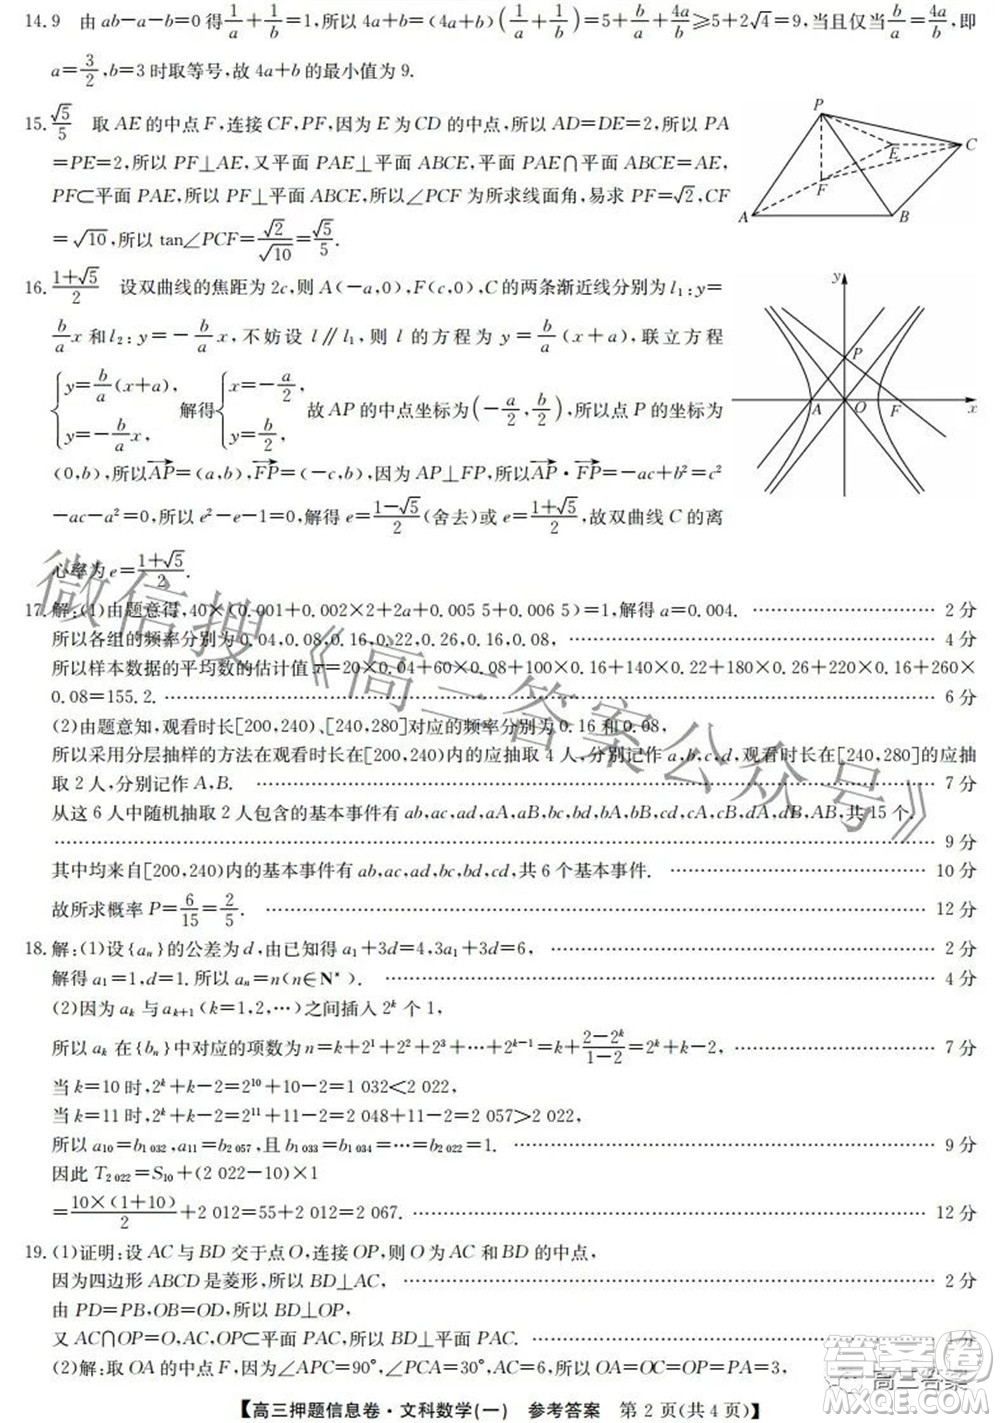 14. 9 由 ab－a－b=0 得 1/a + 1/b =1,所以 4a+b=(4a+b)(1/a + 1/b)=5+ b/a + 4a/b ≥5+2√4=9,当且仅当 b/a = 4a/b,即
a= 3/2,b=3 时取等号,故 4a+b 的最小值为 9.
15. √5/5 取 AE 的中点 F,连接 CF,PF,因为 E 为 CD 的中点,所以 AD=DE=2,所以 PA
=PE=2,所以 PF⊥AE,又平面 PAE⊥平面 ABCE,平面 PAE∩平面 ABCE=AE,
PF⊂平面 PAE,所以 PF⊥平面 ABCE,所以∠PCF 为所求线面角,易求 PF=√2,CF
=√10,所以 tan∠PCF= √2/√10 = √5/5.
P
E
C
F
A
B
16. (1+√5)/2 设双曲线的焦距为 2c,则 A(－a,0),F(c,0),C 的两条渐近线分别为 l₁:y=
b/a x 和 l₂:y=－b/a x,不妨设 l∥l₁,则 l 的方程为 y= b/a (x+a),联立方程
{y= b/a (x+a), y=－b/a x, 解得 {x=－a/2, y= b/2, 故 AP 的中点坐标为(－a/2, b/2),所以点 P 的坐标为
(0,b),所以AP→=(a,b),FP→=(－c,b),因为 AP⊥FP,所以AP→·FP→=－ac+b²=c²
－ac－a²=0,所以 e²－e－1=0,解得 e= (1－√5)/2 (舍去)或 e= (1+√5)/2,故双曲线 C 的离
心率为 e= (1+√5)/2.
y
P
A
O
F
x
17. 解:(1)由题意得,40×(0.001+0.002×2+2a+0.005 5+0.006 5)=1,解得 a=0.004. …… 2 分
所以各组的频率分别为 0.04,0.08,0.16,0.22,0.26,0.16,0.08, …… 4 分
所以样本数据的平均数的估计值 x̄=20×0.04+60×0.08+100×0.16+140×0.22+180×0.26+220×0.16+260×
0.08=155.2. …… 6 分
(2)由题意知,观看时长[200,240)、[240,280]对应的频率分别为 0.16 和 0.08,
所以采用分层抽样的方法在观看时长在[200,240)内的应抽取 4 人,分别记作 a,b,c,d,观看时长在[240,280]的应抽
取 2 人,分别记作 A,B. …… 7 分
从这 6 人中随机抽取 2 人包含的基本事件有 ab,ac,ad,aA,aB,bc,bd,bA,bB,cd,cA,cB,dA,dB,AB,共 15 个.
…… 9 分
其中均来自[200,240)内的基本事件有 ab,ac,ad,bc,bd,cd,共 6 个基本事件. …… 10 分
故所求概率 P= 6/15 = 2/5. …… 12 分
18. 解:(1)设{aₙ}的公差为 d,由已知得 a₁+3d=4,3a₁+3d=6, …… 2 分
解得 a₁=1,d=1. 所以 aₙ=n(n∈N*). …… 4 分
(2)因为 aₖ 与 aₖ₊₁(k=1,2,…)之间插入 2ᵏ 个 1,
所以 aₖ 在{bₙ}中对应的项数为 n=k+2¹+2²+2³+…+2ᵏ⁻¹=k+ (2－2ᵏ)/(1－2) =2ᵏ+k－2, …… 7 分
当 k=10 时,2ᵏ+k－2=2¹⁰+10－2=1 032<2 022,
当 k=11 时,2ᵏ+k－2=2¹¹+11－2=2 048+11－2=2 057>2 022,
所以 a₁₀=b₁ ₀₃₂,a₁₁=b₂ ₀₅₇,且 b₁ ₀₃₃=b₁ ₀₃₄=…=b₂ ₀₅₆=1. …… 9 分
因此 T₂ ₀₂₂=S₁₀+(2 022－10)×1
= 10×(1+10)/2 +2 012=55+2 012=2 067. …… 12 分
19. (1)证明:设 AC 与 BD 交于点 O,连接 OP,则 O 为 AC 和 BD 的中点,
因为四边形 ABCD 是菱形,所以 BD⊥AC, …… 2 分
由 PD=PB,OB=OD,所以 BD⊥OP,
又 AC∩OP=O,AC,OP⊂平面 PAC,所以 BD⊥平面 PAC, …… 4 分
(2)解:取 OA 的中点 F,因为∠APC=90°,AC=6,所以 OA=OC=PO=PA=3,
【高三押题信息卷·文科数学(一) 参考答案 第 2 页(共 4 页)】
微信搜《高三答案公众号》
答案圈
高三答案